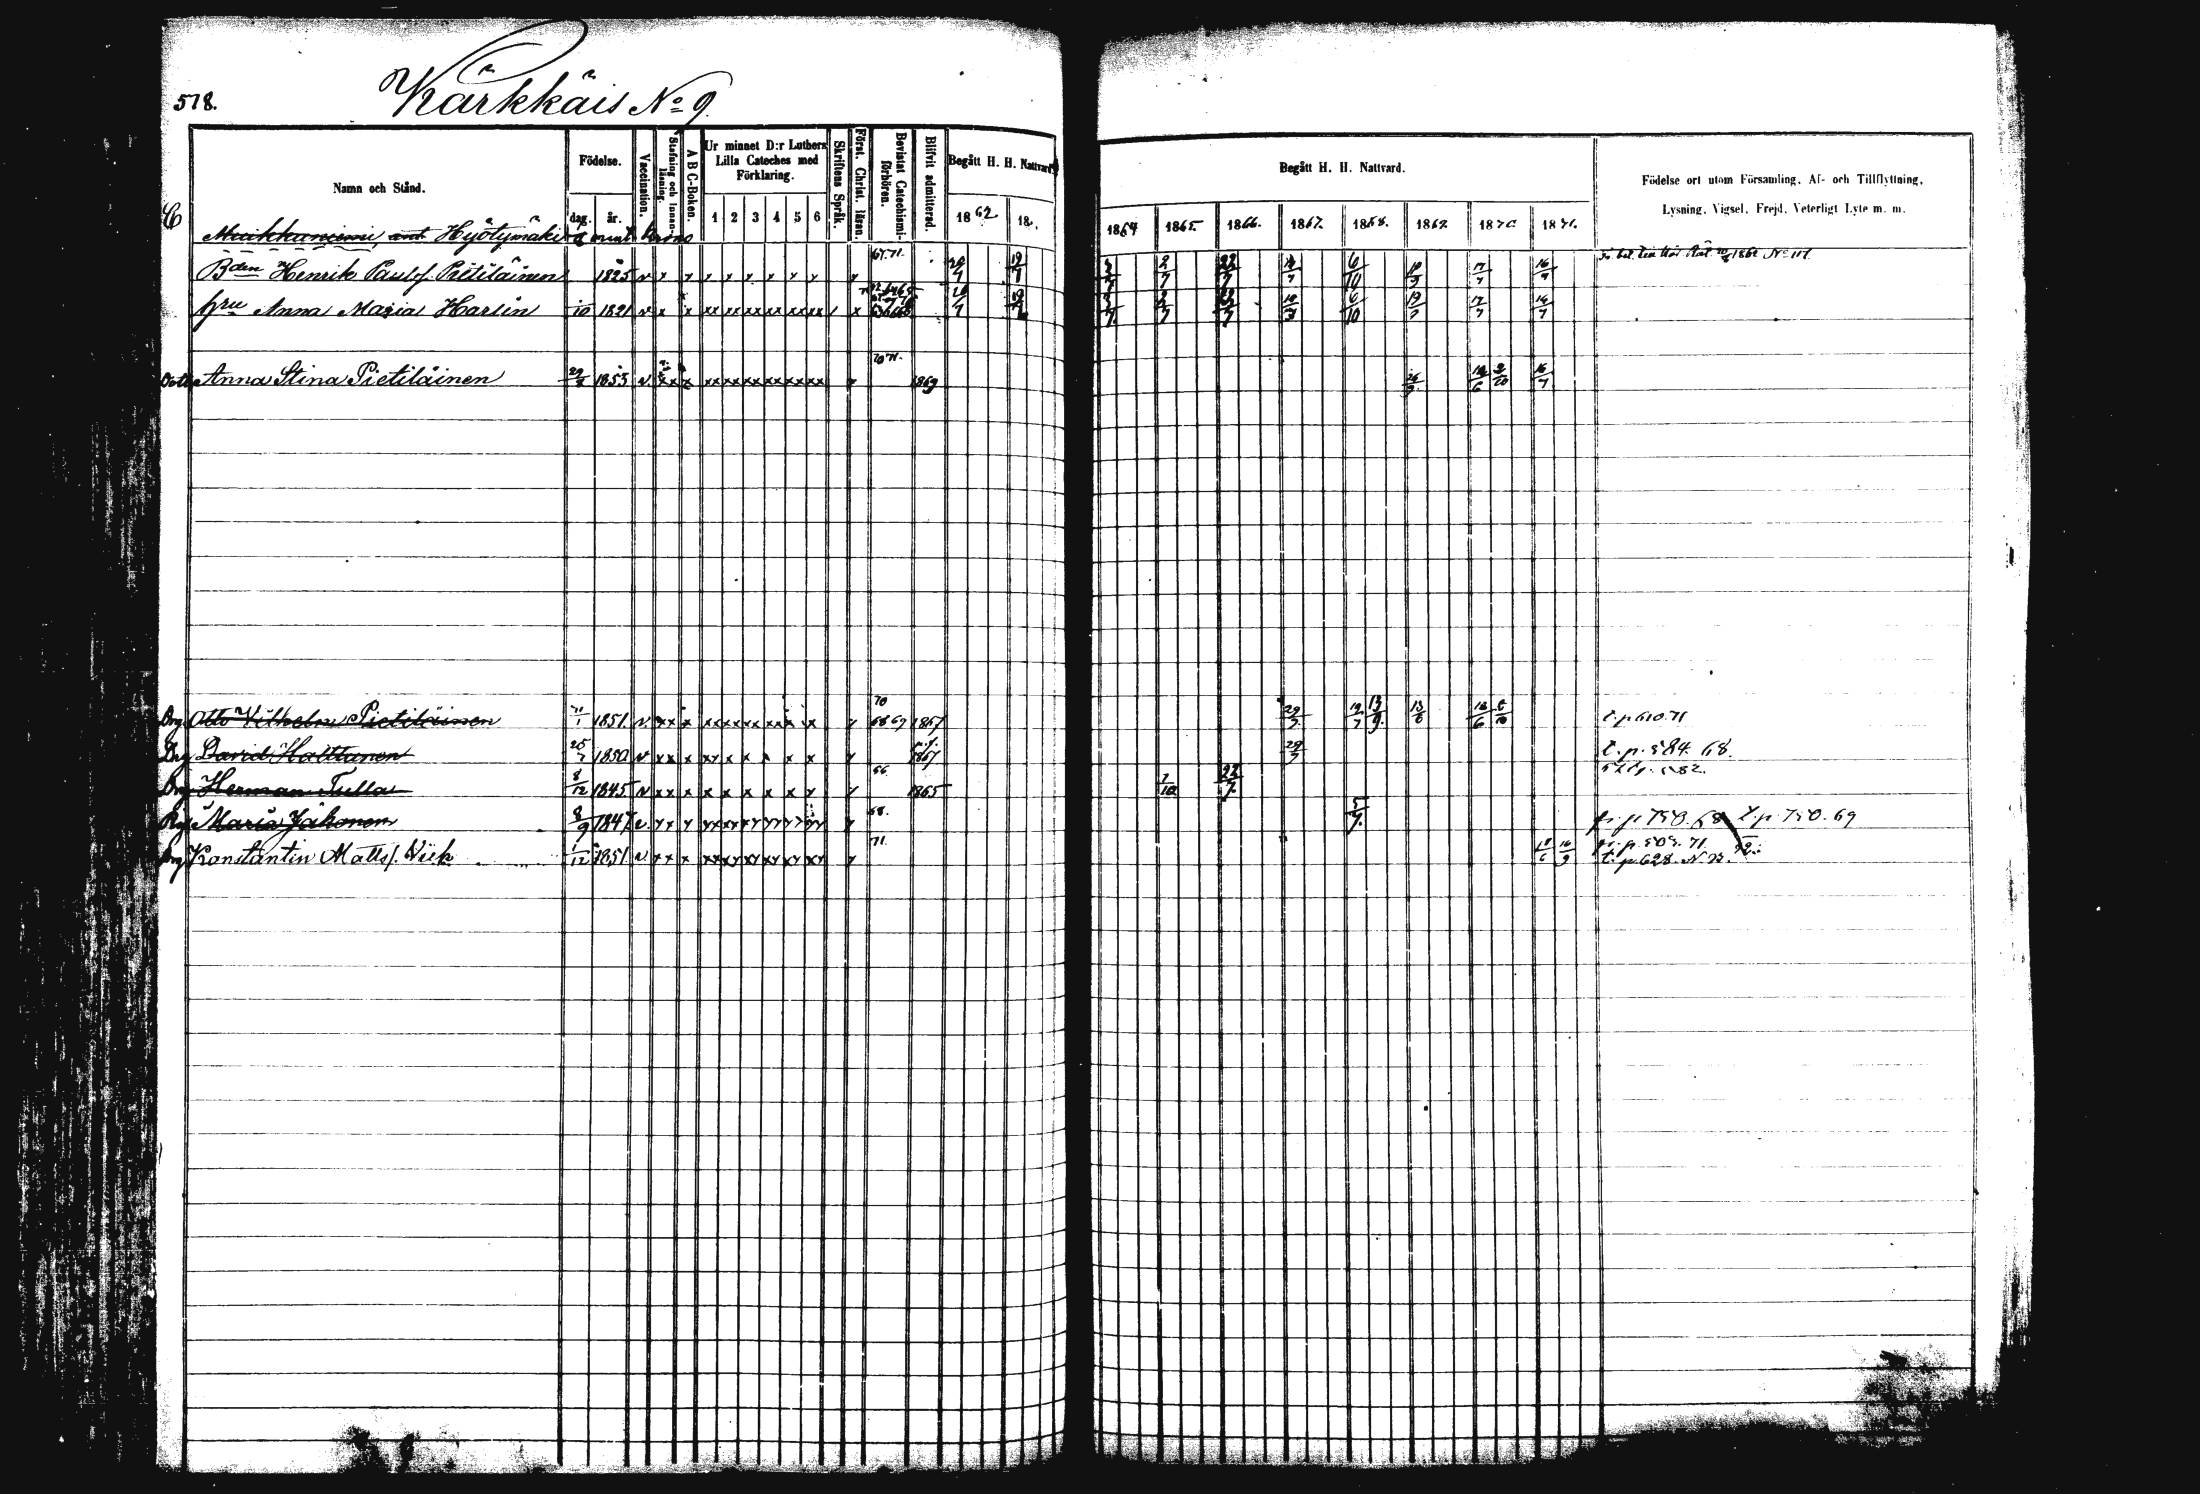 578.
Kärkkäis No 9.
Namn och Stånd.
Födelse.
dag.
år.
Vaccination.
Stafning och Innanläsning.
A B C-Boken.
Ur minnet D:r Luthers Lilla Cateches med Förklaring.
1 2 3 4 5 6
Skriftens Språk.
Först. Christ. läran.
Bevistat Catechismi-förhören.
Blifvit admitterad.
Begått H. H. Nattvard.
1862 18
Begått H. H. Nattvard.
1864 1865. 1866. 1867. 1868. 1869. 1870. 1871.
Födelse ort utom Församling, Af- och Tillflyttning,
Lysning, Vigsel, Frejd, Veterligt Lyte m. m.
Hyötymäki
Bden Henrik Paulsf. Pietiläinen 1825 v x x x x x x x x x 67.71. 20/7 19/7 2/7 2/7 22/7 14/7 6/10 19/9 17/7 16/7
hru Anna Maria Harlin /10 1821 v x x xx xx xx xx xx xx / x 2/7 22/7 6/10 19/9 17/7 16/7
Dott. Anna Stina Pietiläinen 29/7 1853 v xx x xx xx xx xx xx xx x 70 71. 1869 16/7
Drg. Otto Vilhelm Pietiläinen 11/1 1851. v. xx x xx xx xx xx x x x 70 68 69 1867 29/7 19/7 13/9. 13/6 t.p 610.71
Drg David Halttunen 25/7 1850 v xx x xx x x x x x x 1867 29/7 t.p. 584. 68.
Drg Herman Tulla 8/12 1845 v xx x x x x x x x x 66. 1865 1/10 22/7. 582.
Pig Maria Jakonen 8/9 1847 v. xx x xx xx xx xx xx xx x 68. 5/7. fr. p 750. 68 t.p. 750. 69
Drg Konstantin Mattsf. Wiek 1/12 1851. v xx x xx xx xx xx xx xx x 71. 16/9 fr. p. 505. 71.
t. p 628. N 23.